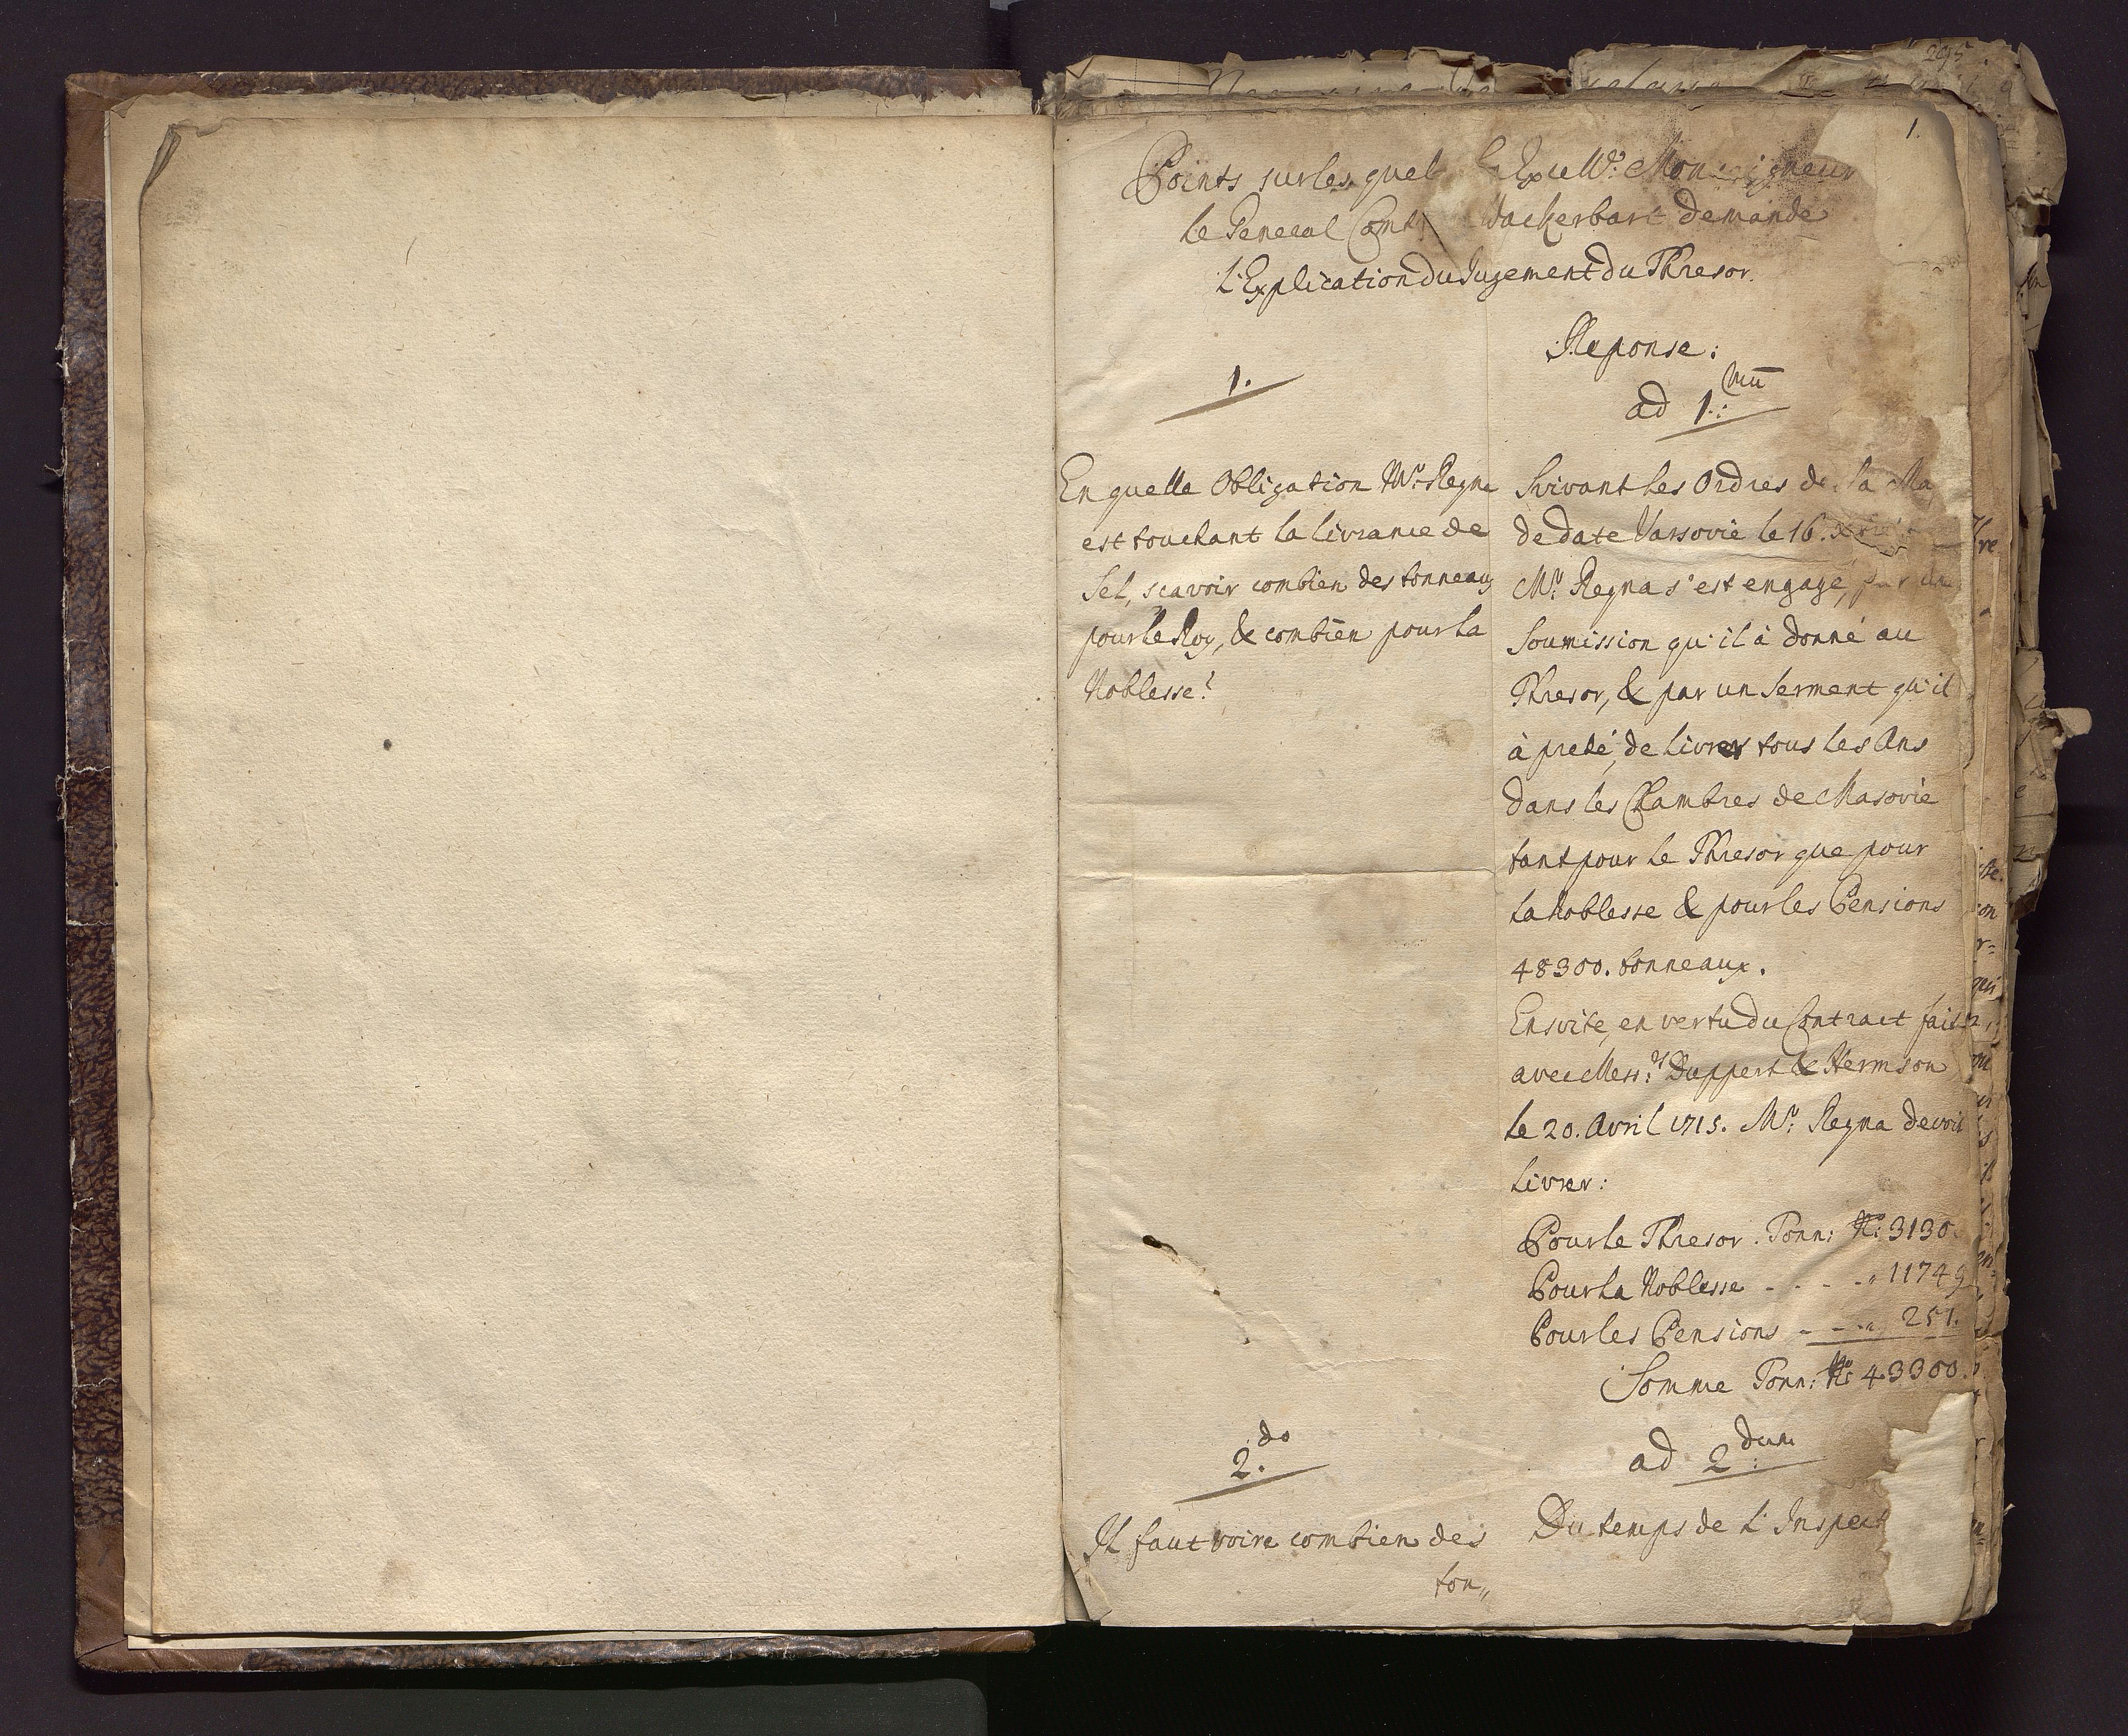 1.
Points sur les quel Monseigneur
le General Wackerbart demande
L'Explication du Jugement du Thresor.
1.
En quelle Obligation Mr: Regna
est touchant la livrance de
Sel, scavoir combien des tonneaux
pour le Roy, & combien pour la
Noblesse?
2.do
Il faut voire combien des
ton„
Reponse:
ad 1.mū
Suivant les Ordres de Sa Ma
de date Varsovie le 16.
Mr: Regna s'est engagé, par une
Soumission qu'il à donné au
Thresor, & par un Serment qu'il
à preté, de livrer tous les Ans
dans les Chambres de Masovie
tant pour le Thresor que pour
la Noblesse & pour les Pensions
48300. tonneaux.
Ensuite, en vertu du Contract fait
avec Mess:rs Duppert & Hermson
le 20. Avril 1715. Mr: Regna devoit
livrer:
Pour le Thresor. Tonn: No: 3130
Pour la Noblesse - - - - „ 11749
Pour les Pensions - - - „ 251.
Somme Tonn: No: 43300.
ad 2.dum
Du temps de L'Inspect